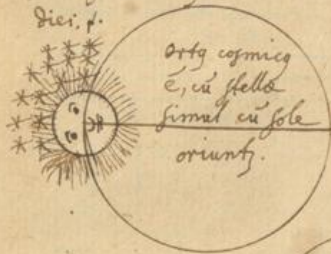 diei. p.
ortq cosmicq
ē, cū stellæ
simul cū sole
oriuntʒ.